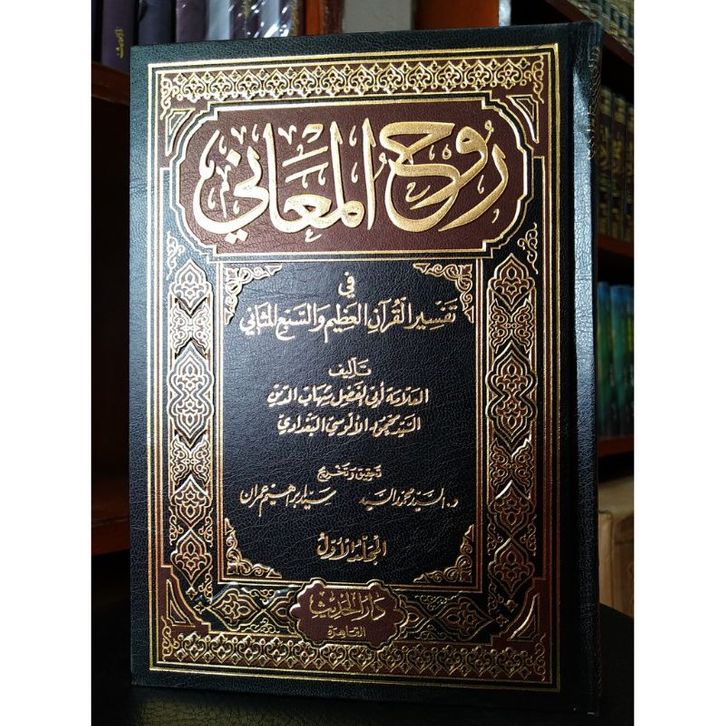 رُوحُ المَعَاني
في
تفسير القرآن العظيم والسبع المثاني
تأليف
العلامة أبي الفضل شهاب الدين
السيد محمود الألوسي البغدادي
تحقيق وتخريج
د. السيد محمد السيد سيد إبراهيم عمران
المجلد الأول
دار الحديث
القاهرة